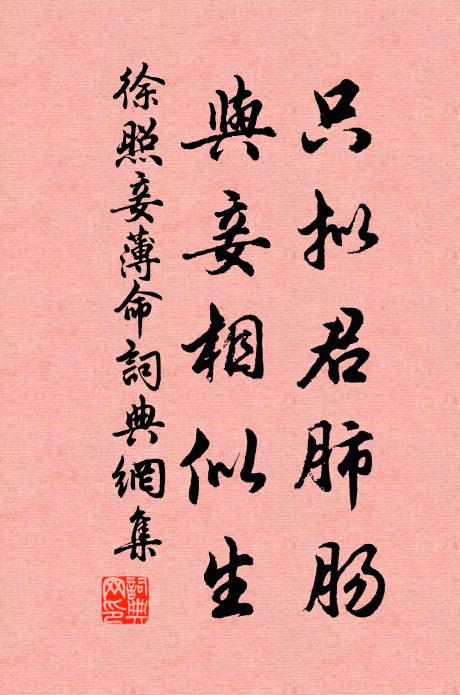 只拟君肺肠
與妾相似生
徐照妾薄命詞典網集
詞典网印